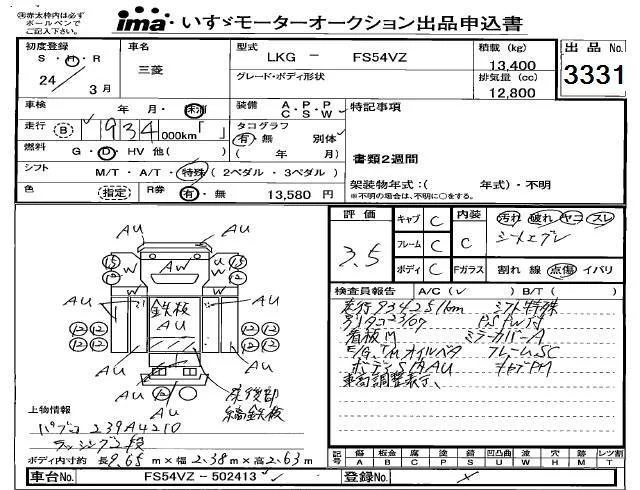 ㊟赤太枠内は必ず
ボールペンで
ご記入下さい。
ima いすゞモーターオークション出品申込書
初度登録
S・H・R
24 3月
車名
三菱
型式
LKG － FS54VZ
グレード・ボディ形状
積載 (kg)
13,400
排気量 (cc)
12,800
出品No.
3331
車検 年 月・抹消
走行 B 934 000km「 」
燃料 G・D・HV 他( )
シフト M/T・A/T・特殊 (2ペダル・3ペダル)
色 指定 R券 有・無 13,580 円
装備 A・P・P
C・S・W
タコグラフ
有・無 別体
( 年 月)
特記事項
書類2週間
架装物年式：( 年式)・不明
※不明の場合は、不明に○をする。
評価 3.5
キャブ C
フレーム C
ボディ C
内装 C
汚れ 破れ ヤニ スレ
Fガラス 割れ 線 点傷 イバリ
検査員報告 A/C (✓ ) B/T ( )
走行934251km シフト特殊
看板M ミラーカバーA
E/G、T/Mオイルベタ フレームSC
ボディS内AU キャブPM
車高調整表示、
AU AU
AU AW U AU
15 W W 15
12 12
AU 鉄板 AU
AU
12 12 12 12
12 12 12 12
AU
AU 12 AU
床後部
縞鉄板
上物情報
パブコ 239A4210
ラッシング2段
ボディ内寸約 長9.65 m×幅 2.38 m×高 2.63 m
記号 傷 板金 腐 塗 錆 凹凸曲 波 穴 跡 レンズ割
A B C P S U W H M T
車台No. FS54VZ－502413
登録No.